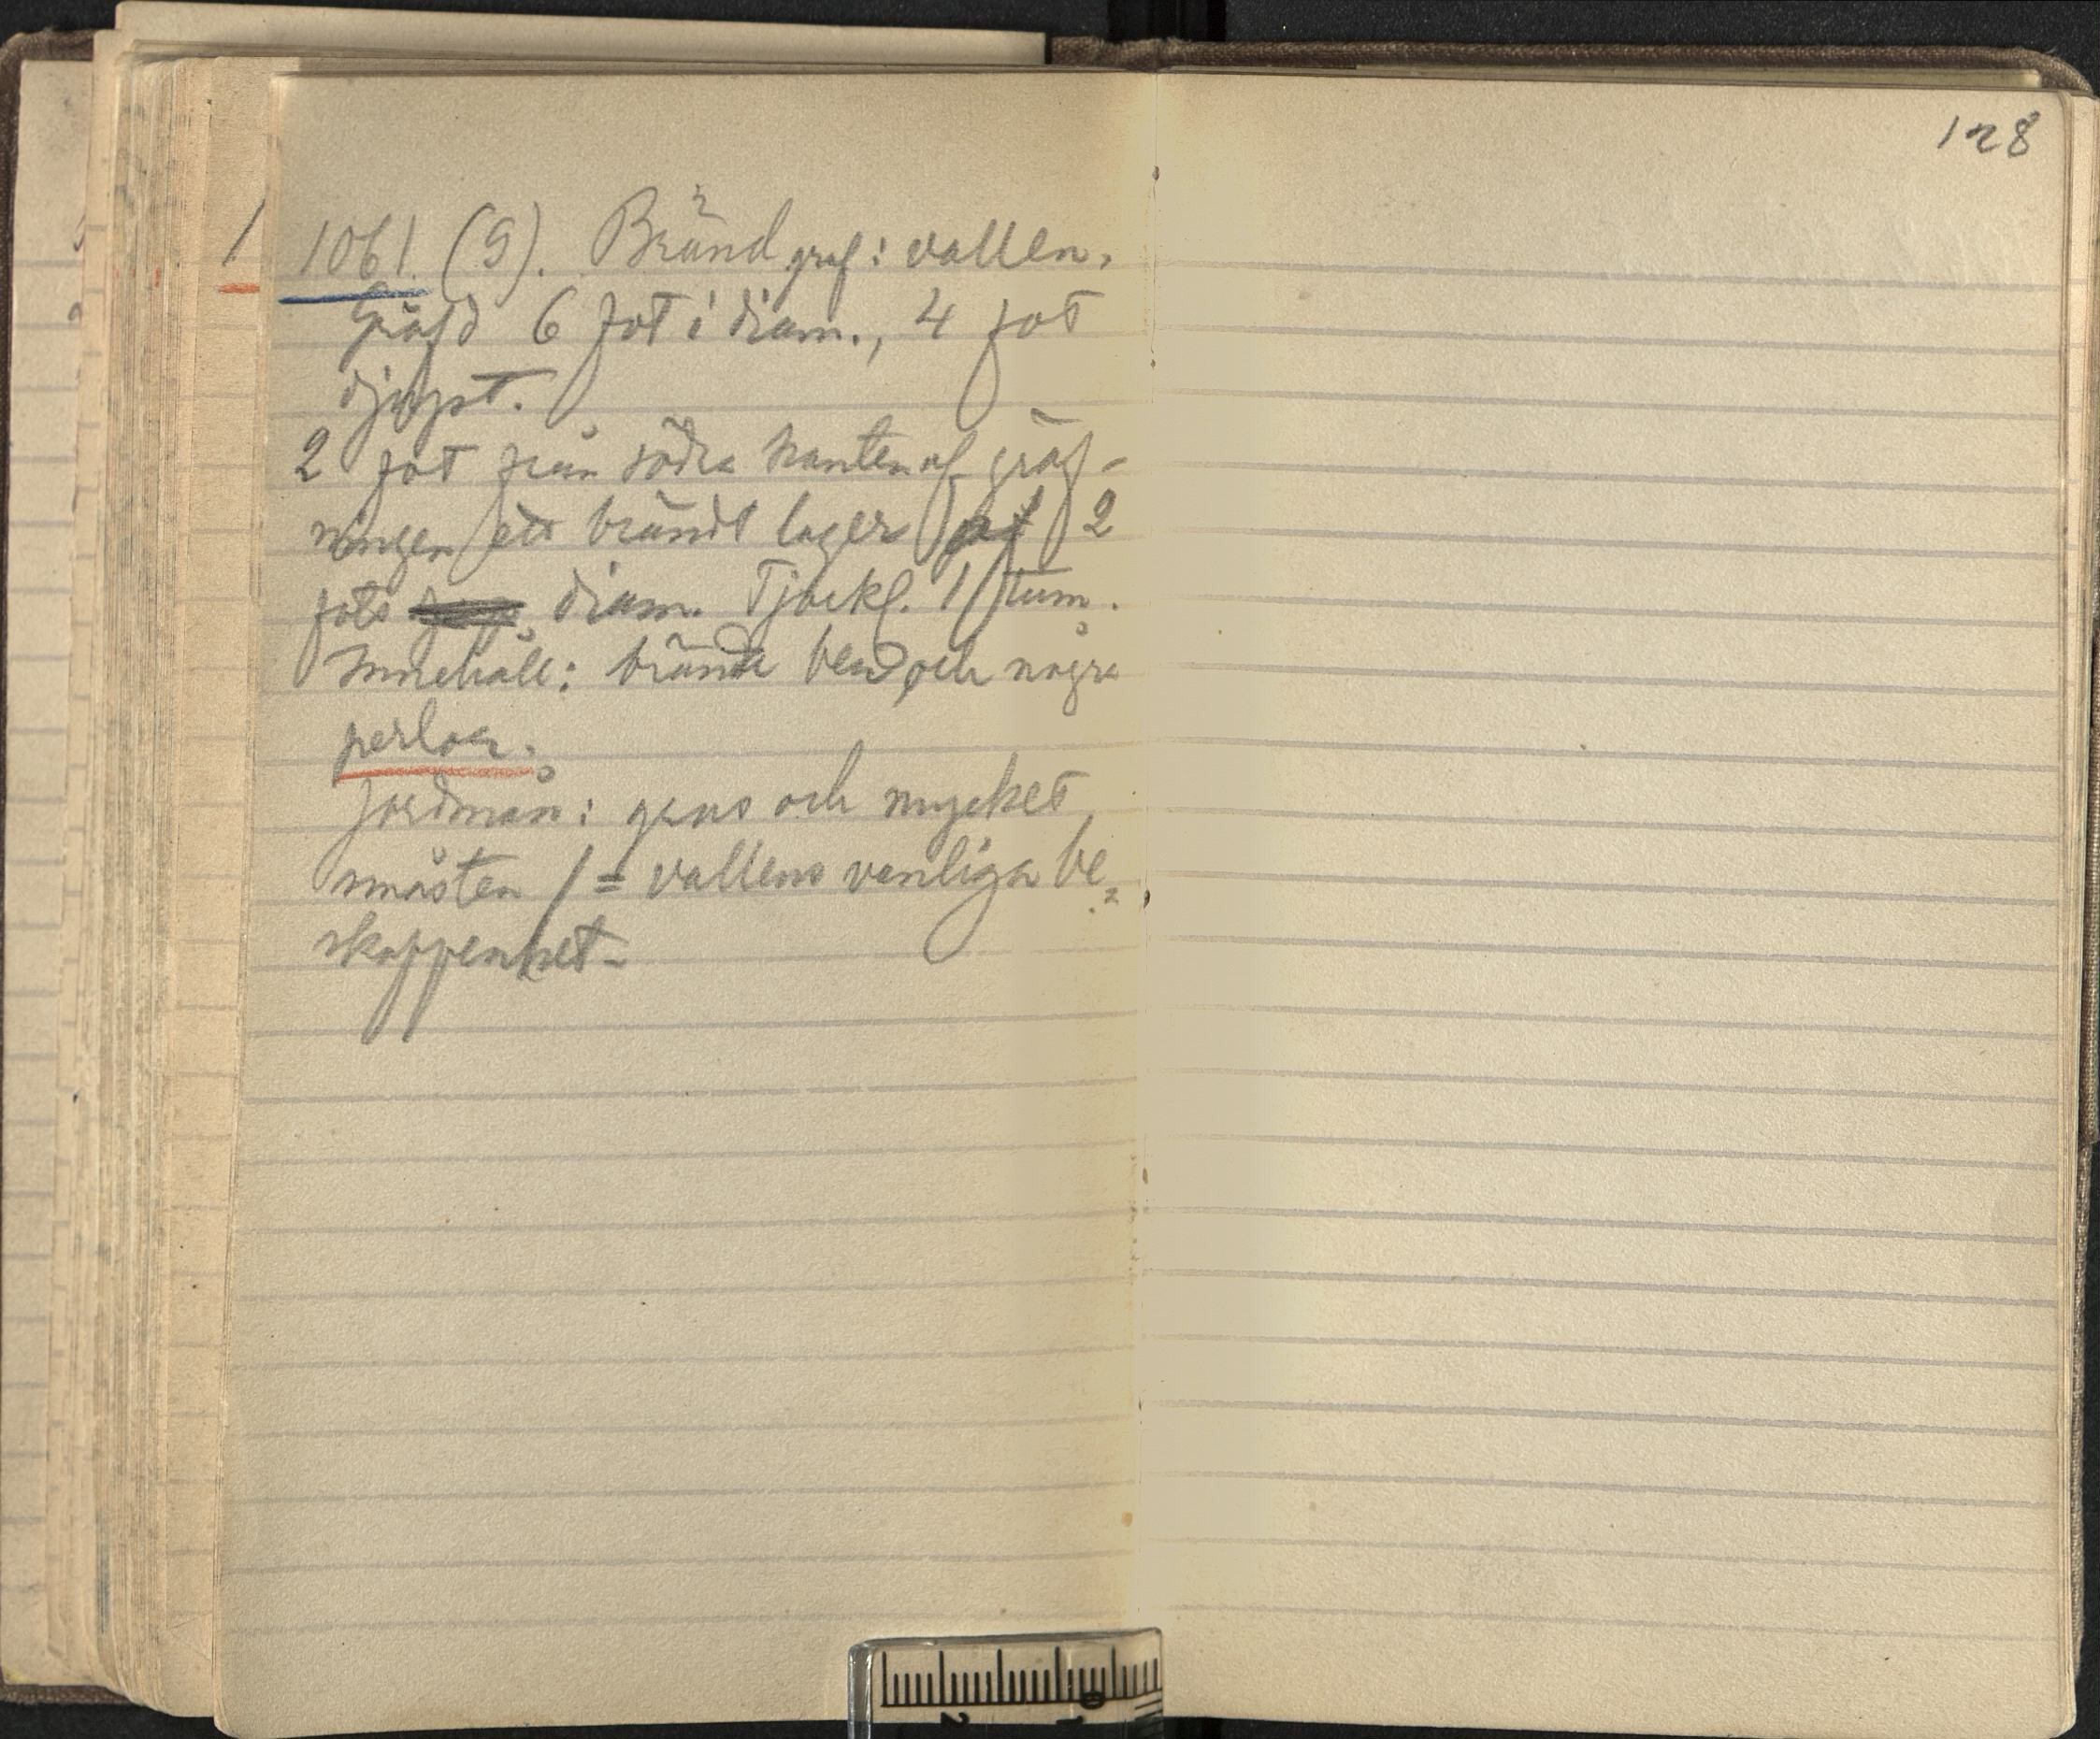 128
1061. (9). Bränd graf i vallen.
Gräfd 6 fot i diam., 4 fot
djupt.
2 fot från södra kanten af gräf-
ningen ett brändt lager af 2
fots diam. Tjockl. 1 tum.
Innehåll: brända ben och några
perlor.
Jordmån: grus och mycket
småsten / = vallens vanliga be-
skaffenhet-
2